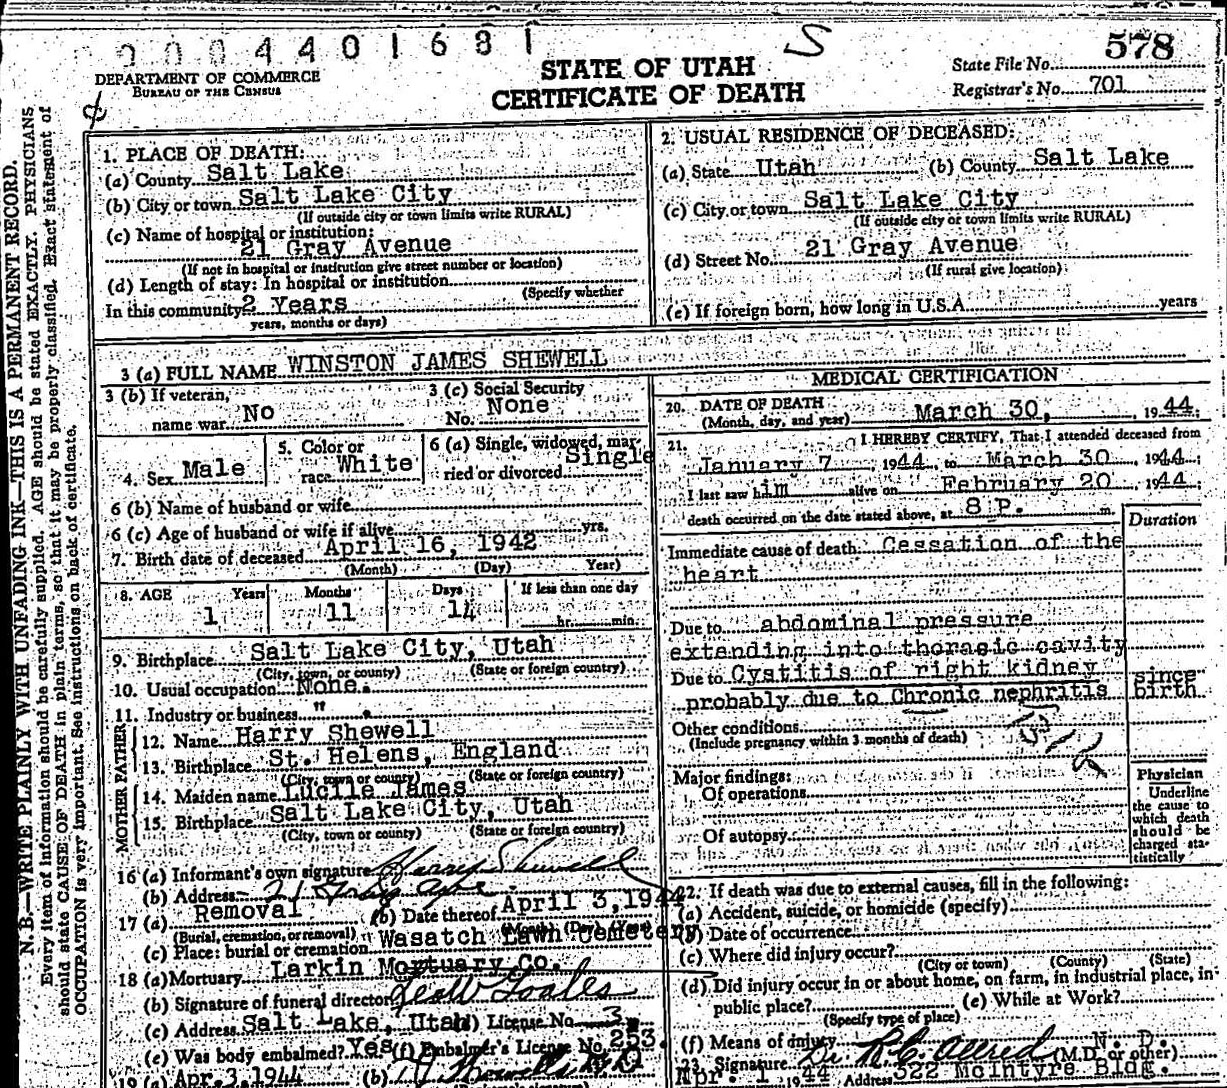 0004401681
S
578
DEPARTMENT OF COMMERCE
BUREAU OF THE CENSUS
STATE OF UTAH
CERTIFICATE OF DEATH
State File No.
Registrar's No. 701
N. B.—WRITE PLAINLY WITH UNFADING INK—THIS IS A PERMANENT RECORD.
Every item of information should be carefully supplied. AGE should be stated EXACTLY. PHYSICIANS
should state CAUSE OF DEATH in plain terms, so that it may be properly classified. Exact statement of
OCCUPATION is very important. See instructions on back of certificate.
1. PLACE OF DEATH:
(a) County Salt Lake
(b) City or town Salt Lake City
(If outside city or town limits write RURAL)
(c) Name of hospital or institution:
21 Gray Avenue
(If not in hospital or institution give street number or location)
(d) Length of stay: In hospital or institution
(Specify whether
In this community 2 Years
years, months or days)
2. USUAL RESIDENCE OF DECEASED:
(a) State Utah (b) County Salt Lake
(c) City or town Salt Lake City
(If outside city or town limits write RURAL)
(d) Street No. 21 Gray Avenue
(If rural give location)
(e) If foreign born, how long in U.S.A. years
3 (a) FULL NAME WINSTON JAMES SHEWELL
3 (b) If veteran,
name war No
3 (c) Social Security
No. None
4. Sex Male
5. Color or
race White
6 (a) Single, widowed, mar-
ried or divorced Single
6 (b) Name of husband or wife
6 (c) Age of husband or wife if alive yrs.
7. Birth date of deceased April 16, 1942
(Month) (Day) Year)
8. AGE Years Months Days If less than one day
1 11 14 hr. min.
9. Birthplace Salt Lake City, Utah
(City, town, or county) (State or foreign country)
10. Usual occupation None.
11. Industry or business " .
FATHER
12. Name Harry Shewell
13. Birthplace St. Helens, England
(City, town or county) (State or foreign country)
MOTHER
14. Maiden name Lucile James
15. Birthplace Salt Lake City, Utah
(City, town or county) (State or foreign country)
16 (a) Informant's own signature Harry Shewell
(b) Address 21 Gray Ave.
17 (a) Removal (b) Date thereof April 3, 1944
(Burial, cremation, or removal) (Month) (Day) (Year)
(c) Place: burial or cremation Wasatch Lawn Cemetery
18 (a) Mortuary Larkin Mortuary Co.
(b) Signature of funeral director
(c) Address Salt Lake, Utah (d) License No. 3
(e) Was body embalmed? Yes (f) Embalmer's License No. 253.
19 (a) Apr. 3, 1944 (b)
MEDICAL CERTIFICATION
20. DATE OF DEATH
(Month, day, and year) March 30, , 1944.
21. I HEREBY CERTIFY, That I attended deceased from
January 7 , 1944, to March 30 , 1944;
I last saw him alive on February 20 , 1944;
death occurred on the date stated above, at 8 P. m.
Duration
Immediate cause of death: Cessation of the
heart
Due to abdominal pressure
extending into thoracic cavity
Due to Cystitis of right kidney since
probably due to Chronic nephritis birth
Other conditions
(Include pregnancy within 3 months of death)
Major findings:
Of operations
Of autopsy
Physician
Underline
the cause to
which death
should be
charged sta-
tistically
22. If death was due to external causes, fill in the following:
(a) Accident, suicide, or homicide (specify)
(b) Date of occurrence
(c) Where did injury occur?
(City or town) (County) (State)
(d) Did injury occur in or about home, on farm, in industrial place, in
public place? (e) While at Work?
(Specify type of place)
(f) Means of injury
N. D.
23. Signature Dr. R. C. Allred (M.D. or other)
Apr. 1 1944 Address 322 McIntyre Bldg.